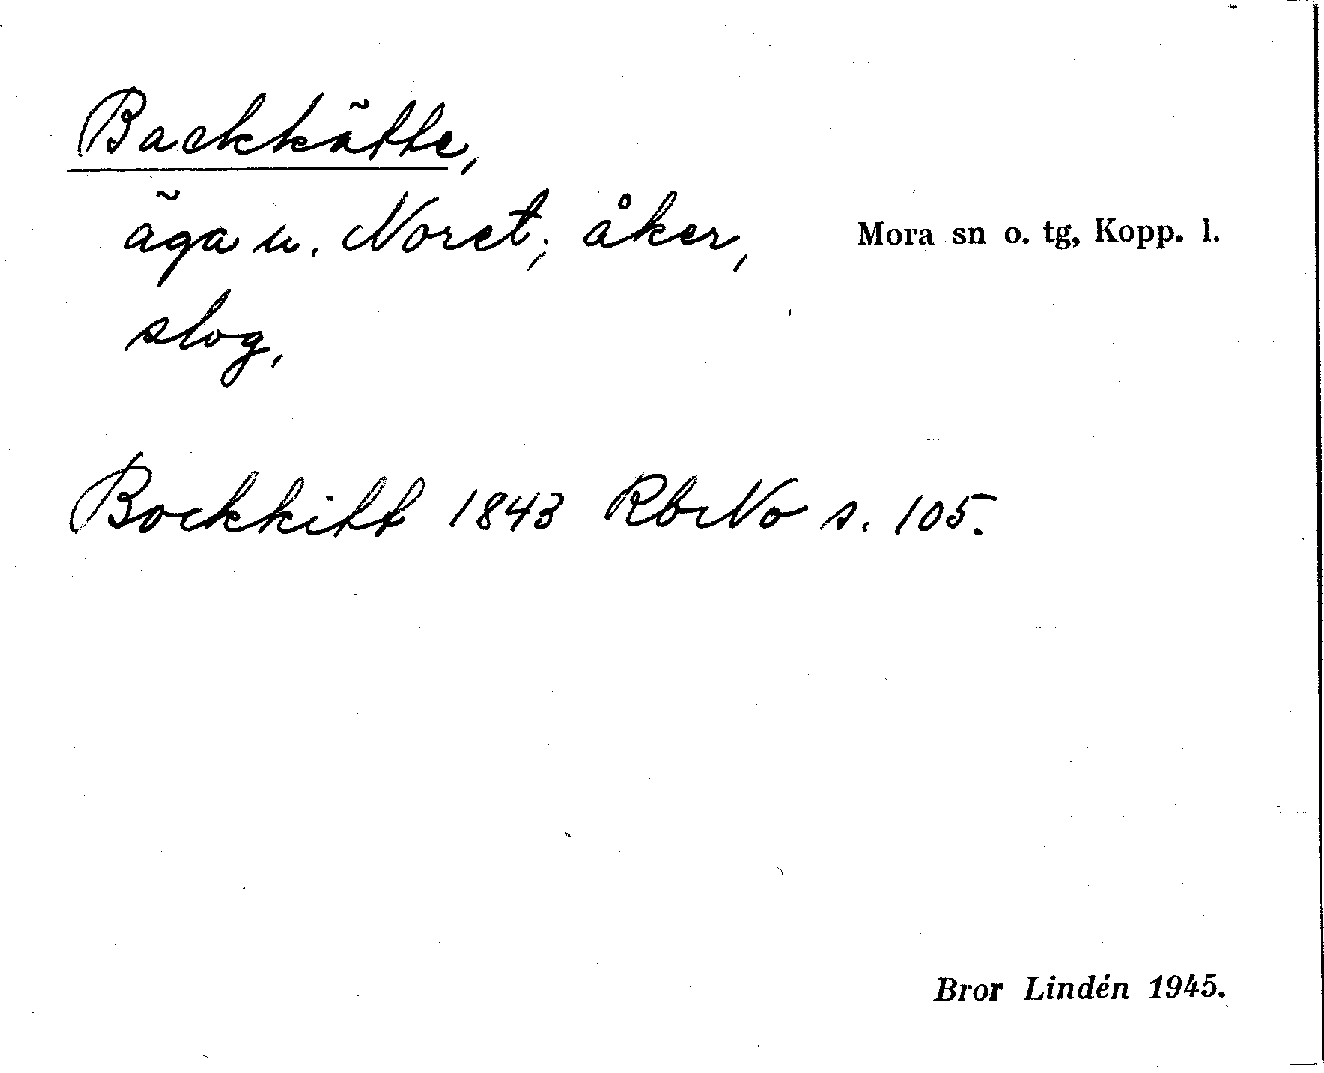 Backkätte,
äga u. Noret; åker,
Mora sn o. tg, Kopp. l.
slog,
Bockkitt 1843 RbNo s. 105.
Bror Lindén 1945.